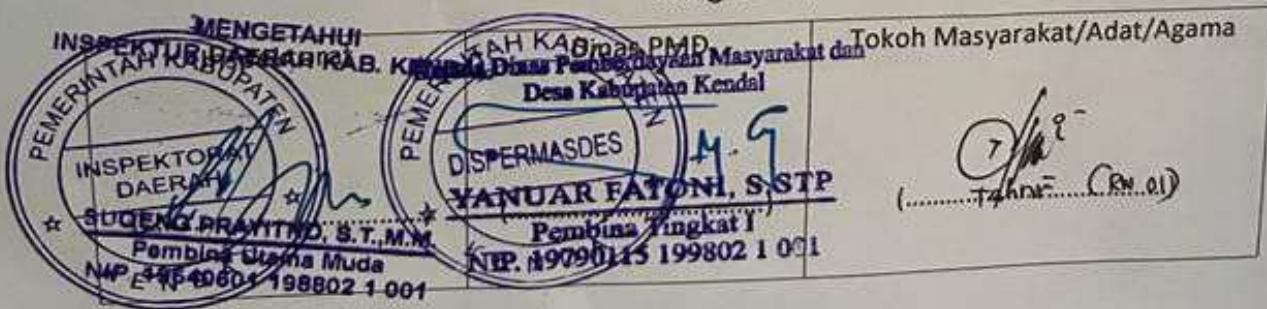 MENGETAHUI
INSPEKTUR DAERAH KAB. KENDAL
PEMERINTAH KABUPATEN
INSPEKTORAT
DAERAH
SUGENG PRAYITNO, S.T., M.M.
Pembina Utama Muda
198802 1 001
Dinas PMD
Kepala Dinas Pemberdayaan Masyarakat dan
Desa Kabupaten Kendal
DISPERMASDES
YANUAR FATONI, S.STP
Pembina Tingkat I
NIP. 19790115 199802 1 001
Tokoh Masyarakat/Adat/Agama
(RW 01)